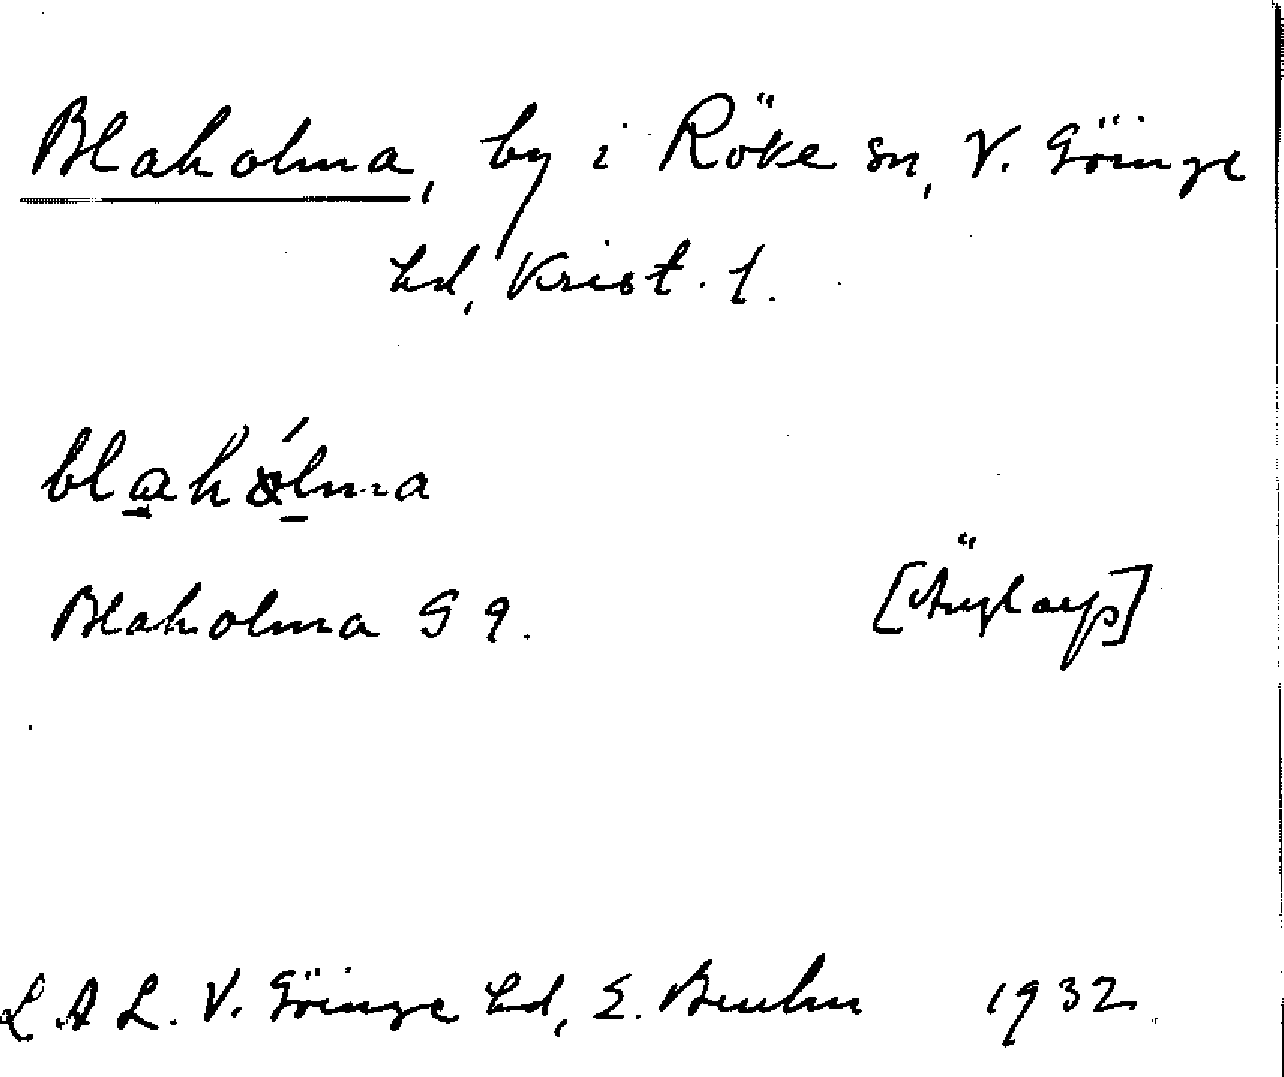 Blaholma, by i Röke sn, V. Göinge
hd, Krist. l.
blahólma
Blaholma G 9.
LAL. V. Göinge hd, E. Bruhn 1932